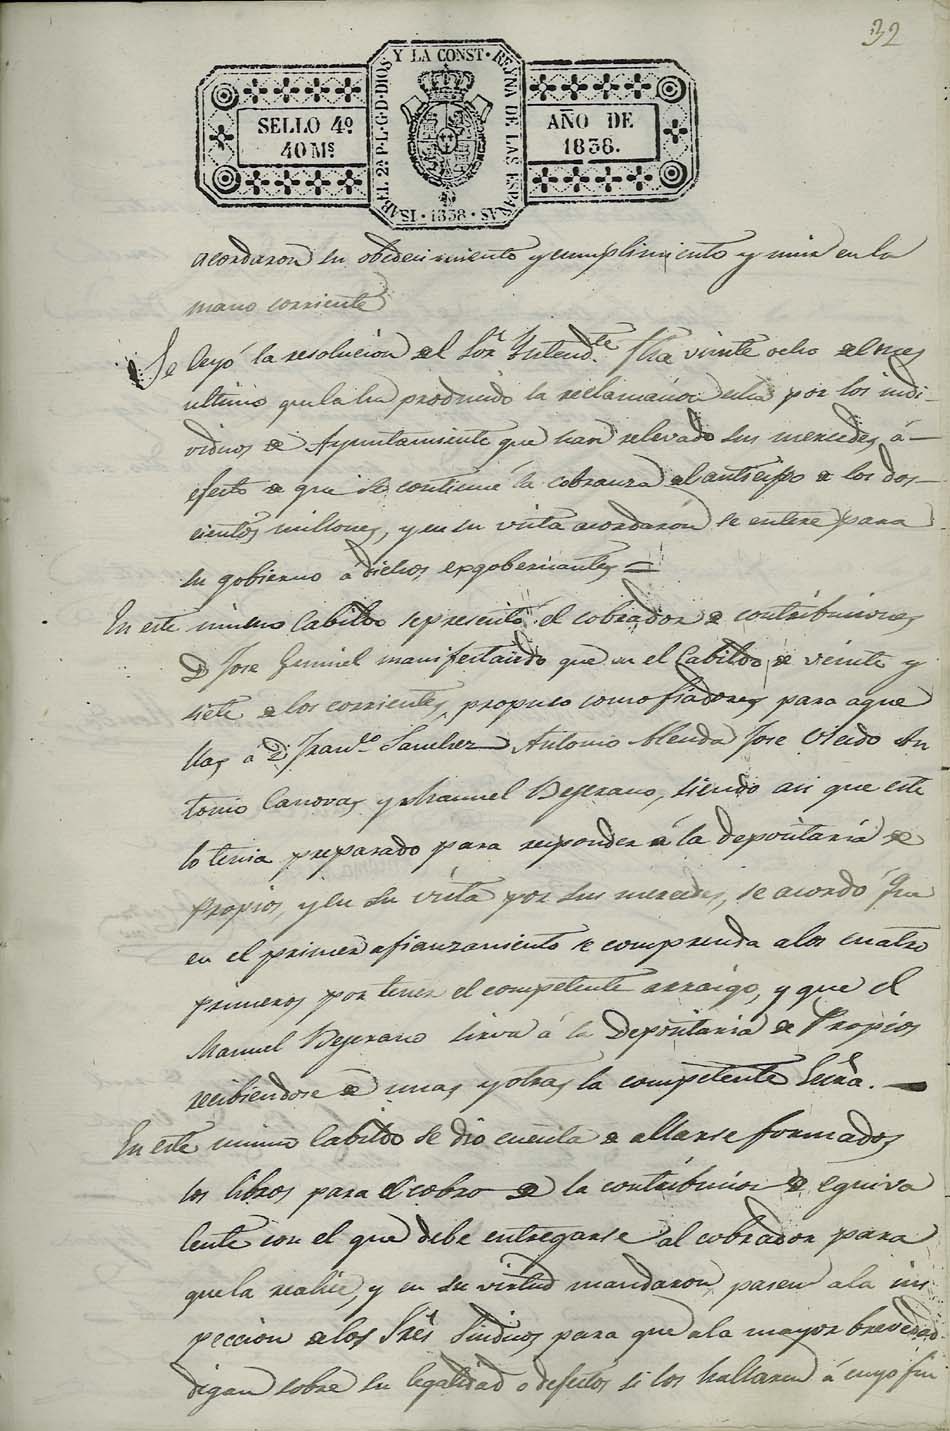 32
ISABEL 2ª P.L.G.D.DIOS Y LA CONST. REYNA DE LAS ESPAÑAS · 1838 ·
SELLO 4º
40 Ms
AÑO DE
1838.
acordaron su obedecimiento y cumplimiento y unir en la
mano corriente
Se leyó la resolucion del Sor Intendte fha veinte ocho del mes
ultimo que la ha producido la reclamacion echa por los indi-
viduos de Ayuntamiento que han relevado sus mercedes á
efecto de que se continue la cobranza del anticipo de los dos-
cientos millones, y en su vista acordaron se entere para
su gobierno á dichos exgobernantes =
En este mismo Cabildo se presentó el cobrador de contribuciones
D Jose manifestando que en el Cabildo de veinte y
siete de los corrientes, propuso como fiadores para aque
llas a D. Franco Sanchez Antonio Jose Oliedo An
tonio Canovas y Manuel Bejerano, siendo asi que este
lo tenia preparado para responder á la depositaria de
Propios, y en su vista por sus mercedes, se acordó Que
en el primer afianzamiento se comprenda a los cuatro
primeros por tener el competente arraigo, y que el
Manuel Bejerano sirva á la Depositaria de Propios
recibiendose de unas y otras la competente Scra.
En este mismo Cabildo se dio cuenta de allarse formados
los libros para el cobro de la contribucion de equiva
lente con el que debe entregarse al cobrador para
que la realice, y en su virtud mandaron pasen a la ins
peccion de los Sres Sindicos, para que a la mayor brevedad
digan sobre su legalidad o defectos si los hallaren á cuyo fin